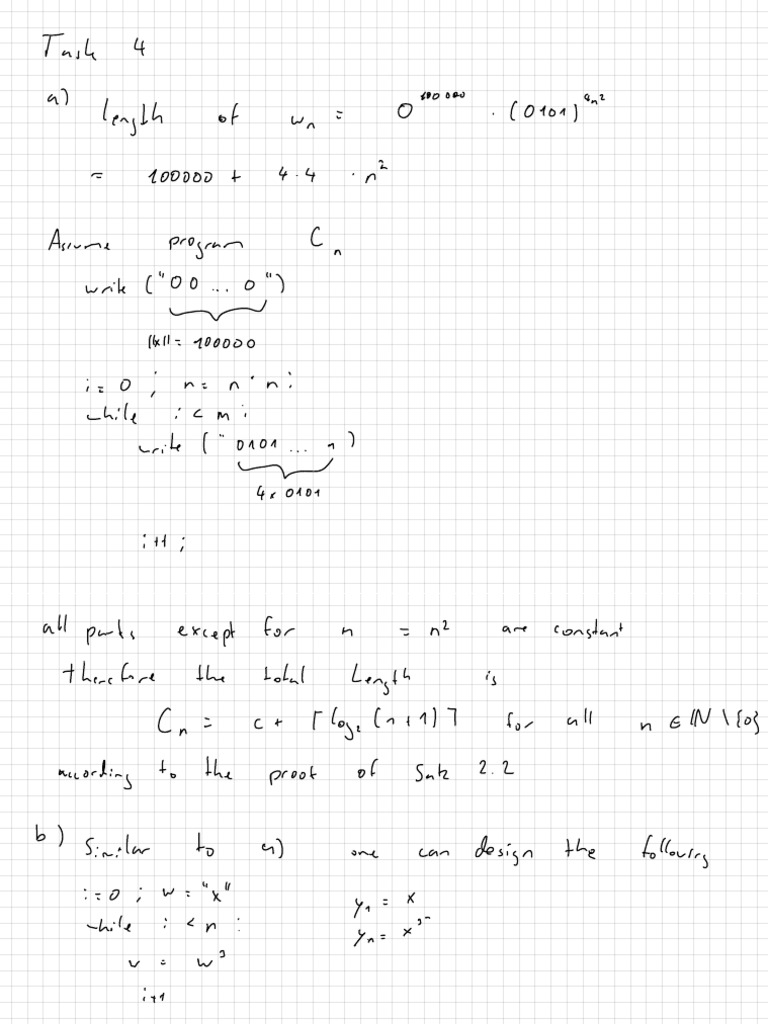 Task 4
a) length of wₙ = 0^100000 · (0101)^4n²
= 100000 + 4·4 · n²
Assume program Cₙ
write ("00...0")
||x|| = 100000
i = 0 ; n = n · n ;
while i < m ;
write ("0101 ... 1)
4x 0101
i+1 ;
all parts except for n = n² are constant
therefore the total Length is
Cₙ = c + ⌈log₂(n+1)⌉ for all n ∈ ℕ \ {0}
according to the proof of Satz 2.2
b) Similar to a) one can design the following
i=0 ; w = "x" y₁ = x
while i < n : yₙ = x^3ⁿ
v = w³
i+1